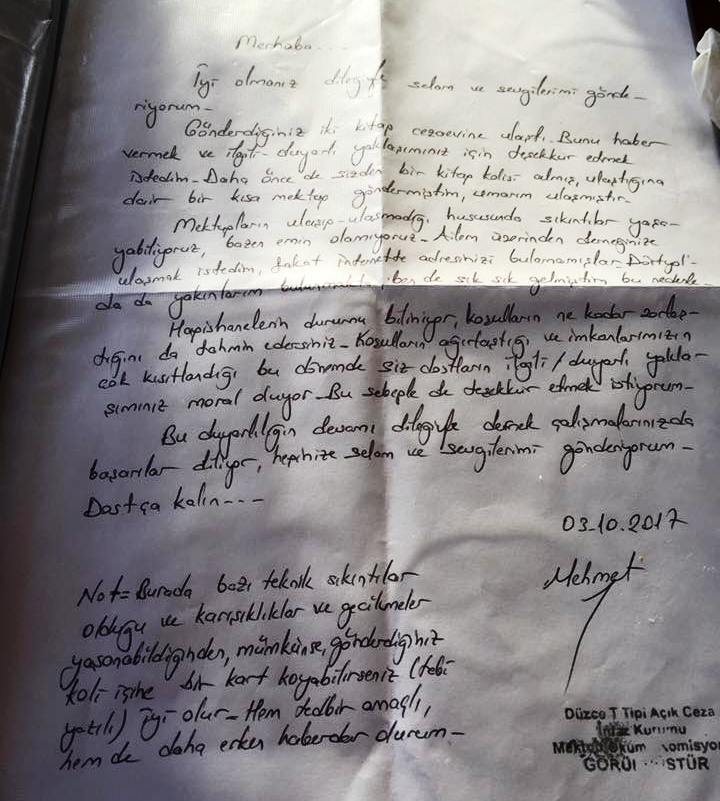 Merhaba...
İyi olmanız dileğiyle selam ve sevgilerimi gönde-
riyorum-
Gönderdiğiniz iki kitap cezaevine ulaştı. Bunu haber
vermek ve ilgili-duyarlı yaklaşımınız için teşekkür etmek
istedim- Daha önce de sizden bir kitap kolisi almış, ulaştığına
dair bir kısa mektup göndermiştim, umarım ulaşmıştır-
Mektupların ulaşıp-ulaşmadığı hususunda sıkıntılar yaşa-
yabiliyoruz, bazen emin olamıyoruz- Ailem üzerinden derneğinize
ulaşmak istedim, fakat internette adresinizi bulamamışlar Dörtyol'
da da yakınlarım ben de sık sık gelmiştim bu nedenle-
Hapishanelerin durumu biliniyor, koşulların ne kadar zorlaş-
tığını da tahmin edersiniz- Koşulların ağırlaştığı ve imkanlarımızın
çok kısıtlandığı bu dönemde siz dostların ilgili/duyarlı yakla-
şımınız moral oluyor- Bu sebeple de teşekkür etmek istiyorum-
Bu duyarlılığın devamı dileğiyle dernek çalışmalarınızda
başarılar diliyor, hepinize selam ve sevgilerimi gönderiyorum-
Dostça kalın---
03.10.2017
Mehmet
Not= Burada bazı teknik sıkıntılar
olduğu ve karışıklıklar ve gecikmeler
yaşanabildiğinden, mümkünse, gönderdiğiniz
koli içine bir kart koyabilirseniz (tabi
yazılı) iyi olur- Hem tedbir amaçlı,
hem de daha erken haberdar olurum-
Düzce T Tipi Açık Ceza
İnfaz Kurumu
Mektup Okuma Komisyon
GÖRÜLMÜŞTÜR